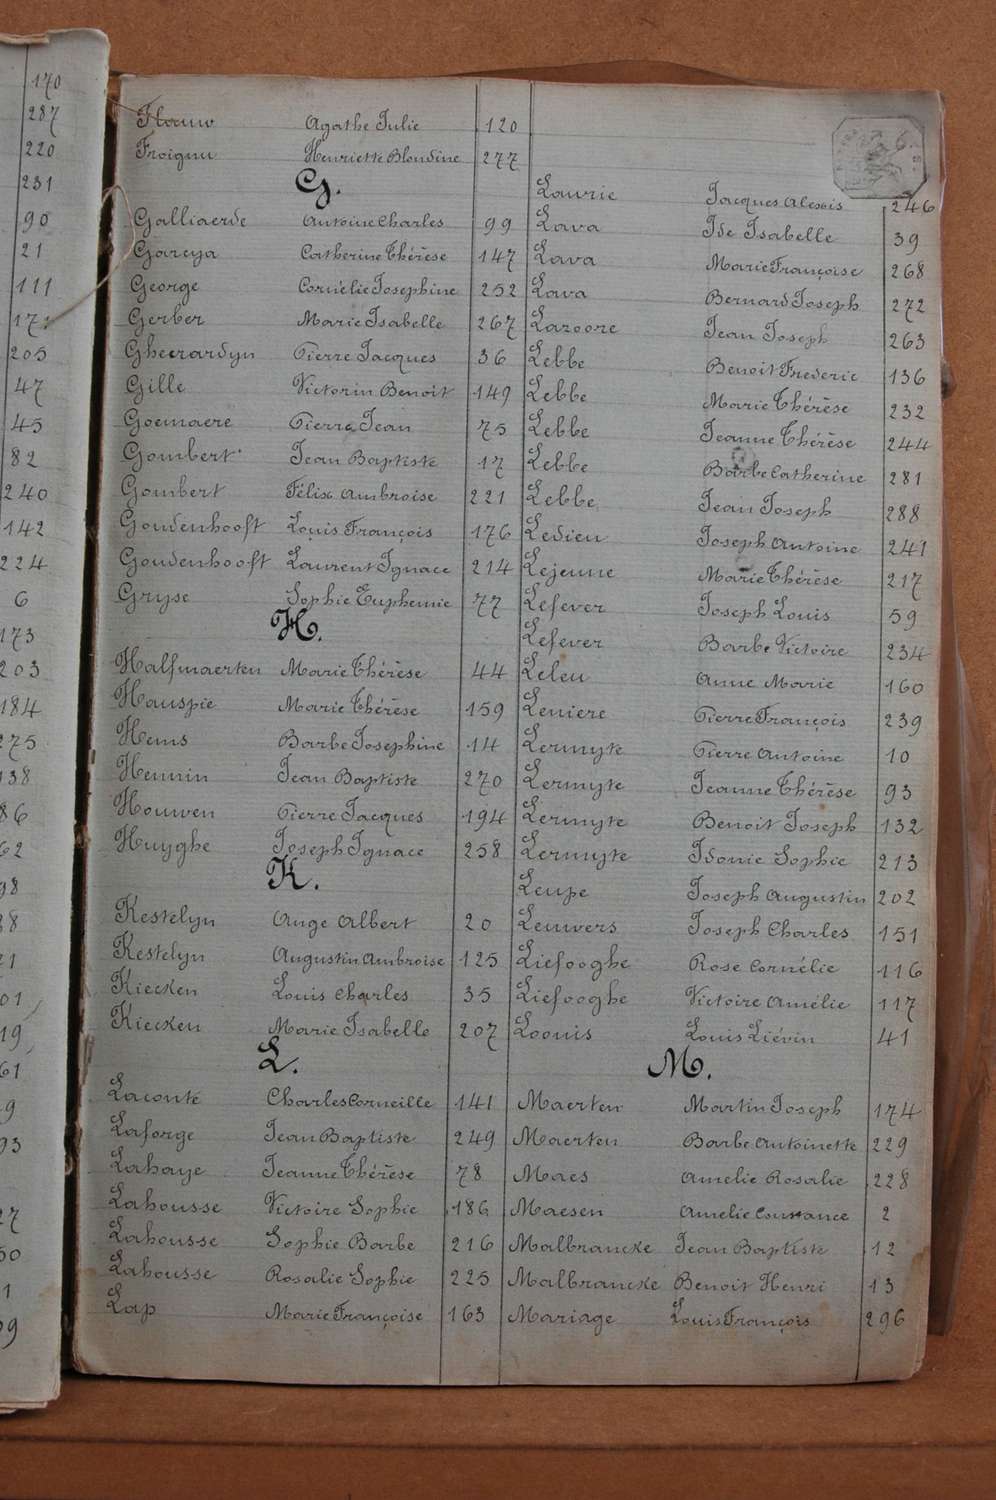 170
287
220
231
90
21
111
171
205
47
45
82
240
142
224
6
173
203
184
275
138
Flouw Agathe Julie 120
Froignu Henriette Blondine 277
G.
Galliaerde Antoine Charles 99
Gareya Catherine Thérèse 147
George Cornélie Josephine 252
Gerber Marie Isabelle 267
Gheerardyn Pierre Jacques 36
Gille Victorin Benoit 149
Goemaere Pierre Jean 75
Gombert Jean Baptiste 17
Gombert Félix Ambroise 221
Goudenhooft Louis François 176
Goudenhooft Laurent Ignace 214
Gryse Sophie Euphemie 77
H.
Halfmaerten Marie Thérèse 44
Hauspie Marie Thérèse 159
Hems Barbe Josephine 14
Hennin Jean Baptiste 270
Houwen Pierre Jacques 194
Huyghe Joseph Ignace 258
K.
Kestelyn Ange Albert 20
Kestelyn Augustin Ambroise 125
Kiecken Louis Charles 35
Kiecken Marie Isabelle 207
L.
Laconte Charles Corneille 141
Laforge Jean Baptiste 249
Lahaye Jeanne Thérèse 78
Lahousse Victoire Sophie 186
Lahousse Sophie Barbe 216
Lahousse Rosalie Sophie 225
Lap Marie Françoise 163
6.
Laurie Jacques Alexis 246
Lava Ide Isabelle 39
Lava Marie Françoise 268
Lava Bernard Joseph 272
Lazoore Jean Joseph 263
Lebbe Benoit Frederic 136
Lebbe Marie Thérèse 232
Lebbe Jeanne Thérèse 244
Lebbe Barbe Catherine 281
Lebbe Jean Joseph 288
Ledieu Joseph Antoine 241
Lejeune Marie Thérèse 217
Lefever Joseph Louis 59
Lefever Barbe Victoire 234
Leleu Anne Marie 160
Leniere Pierre François 239
Lermyte Pierre Antoine 10
Lermyte Jeanne Thérèse 93
Lermyte Benoit Joseph 132
Lermyte Idonie Sophie 213
Leupe Joseph Augustin 202
Leuwers Joseph Charles 151
Liefooghe Rose Cornélie 116
Liefooghe Victoire Amélie 117
Loouis Louis Liévin 41
M.
Maerten Martin Joseph 174
Maerten Barbe Antoinette 229
Maes Amelie Rosalie 228
Maesen Amelie Constance 2
Malbrancke Jean Baptiste 12
Malbrancke Benoit Henri 13
Mariage Louis François 296